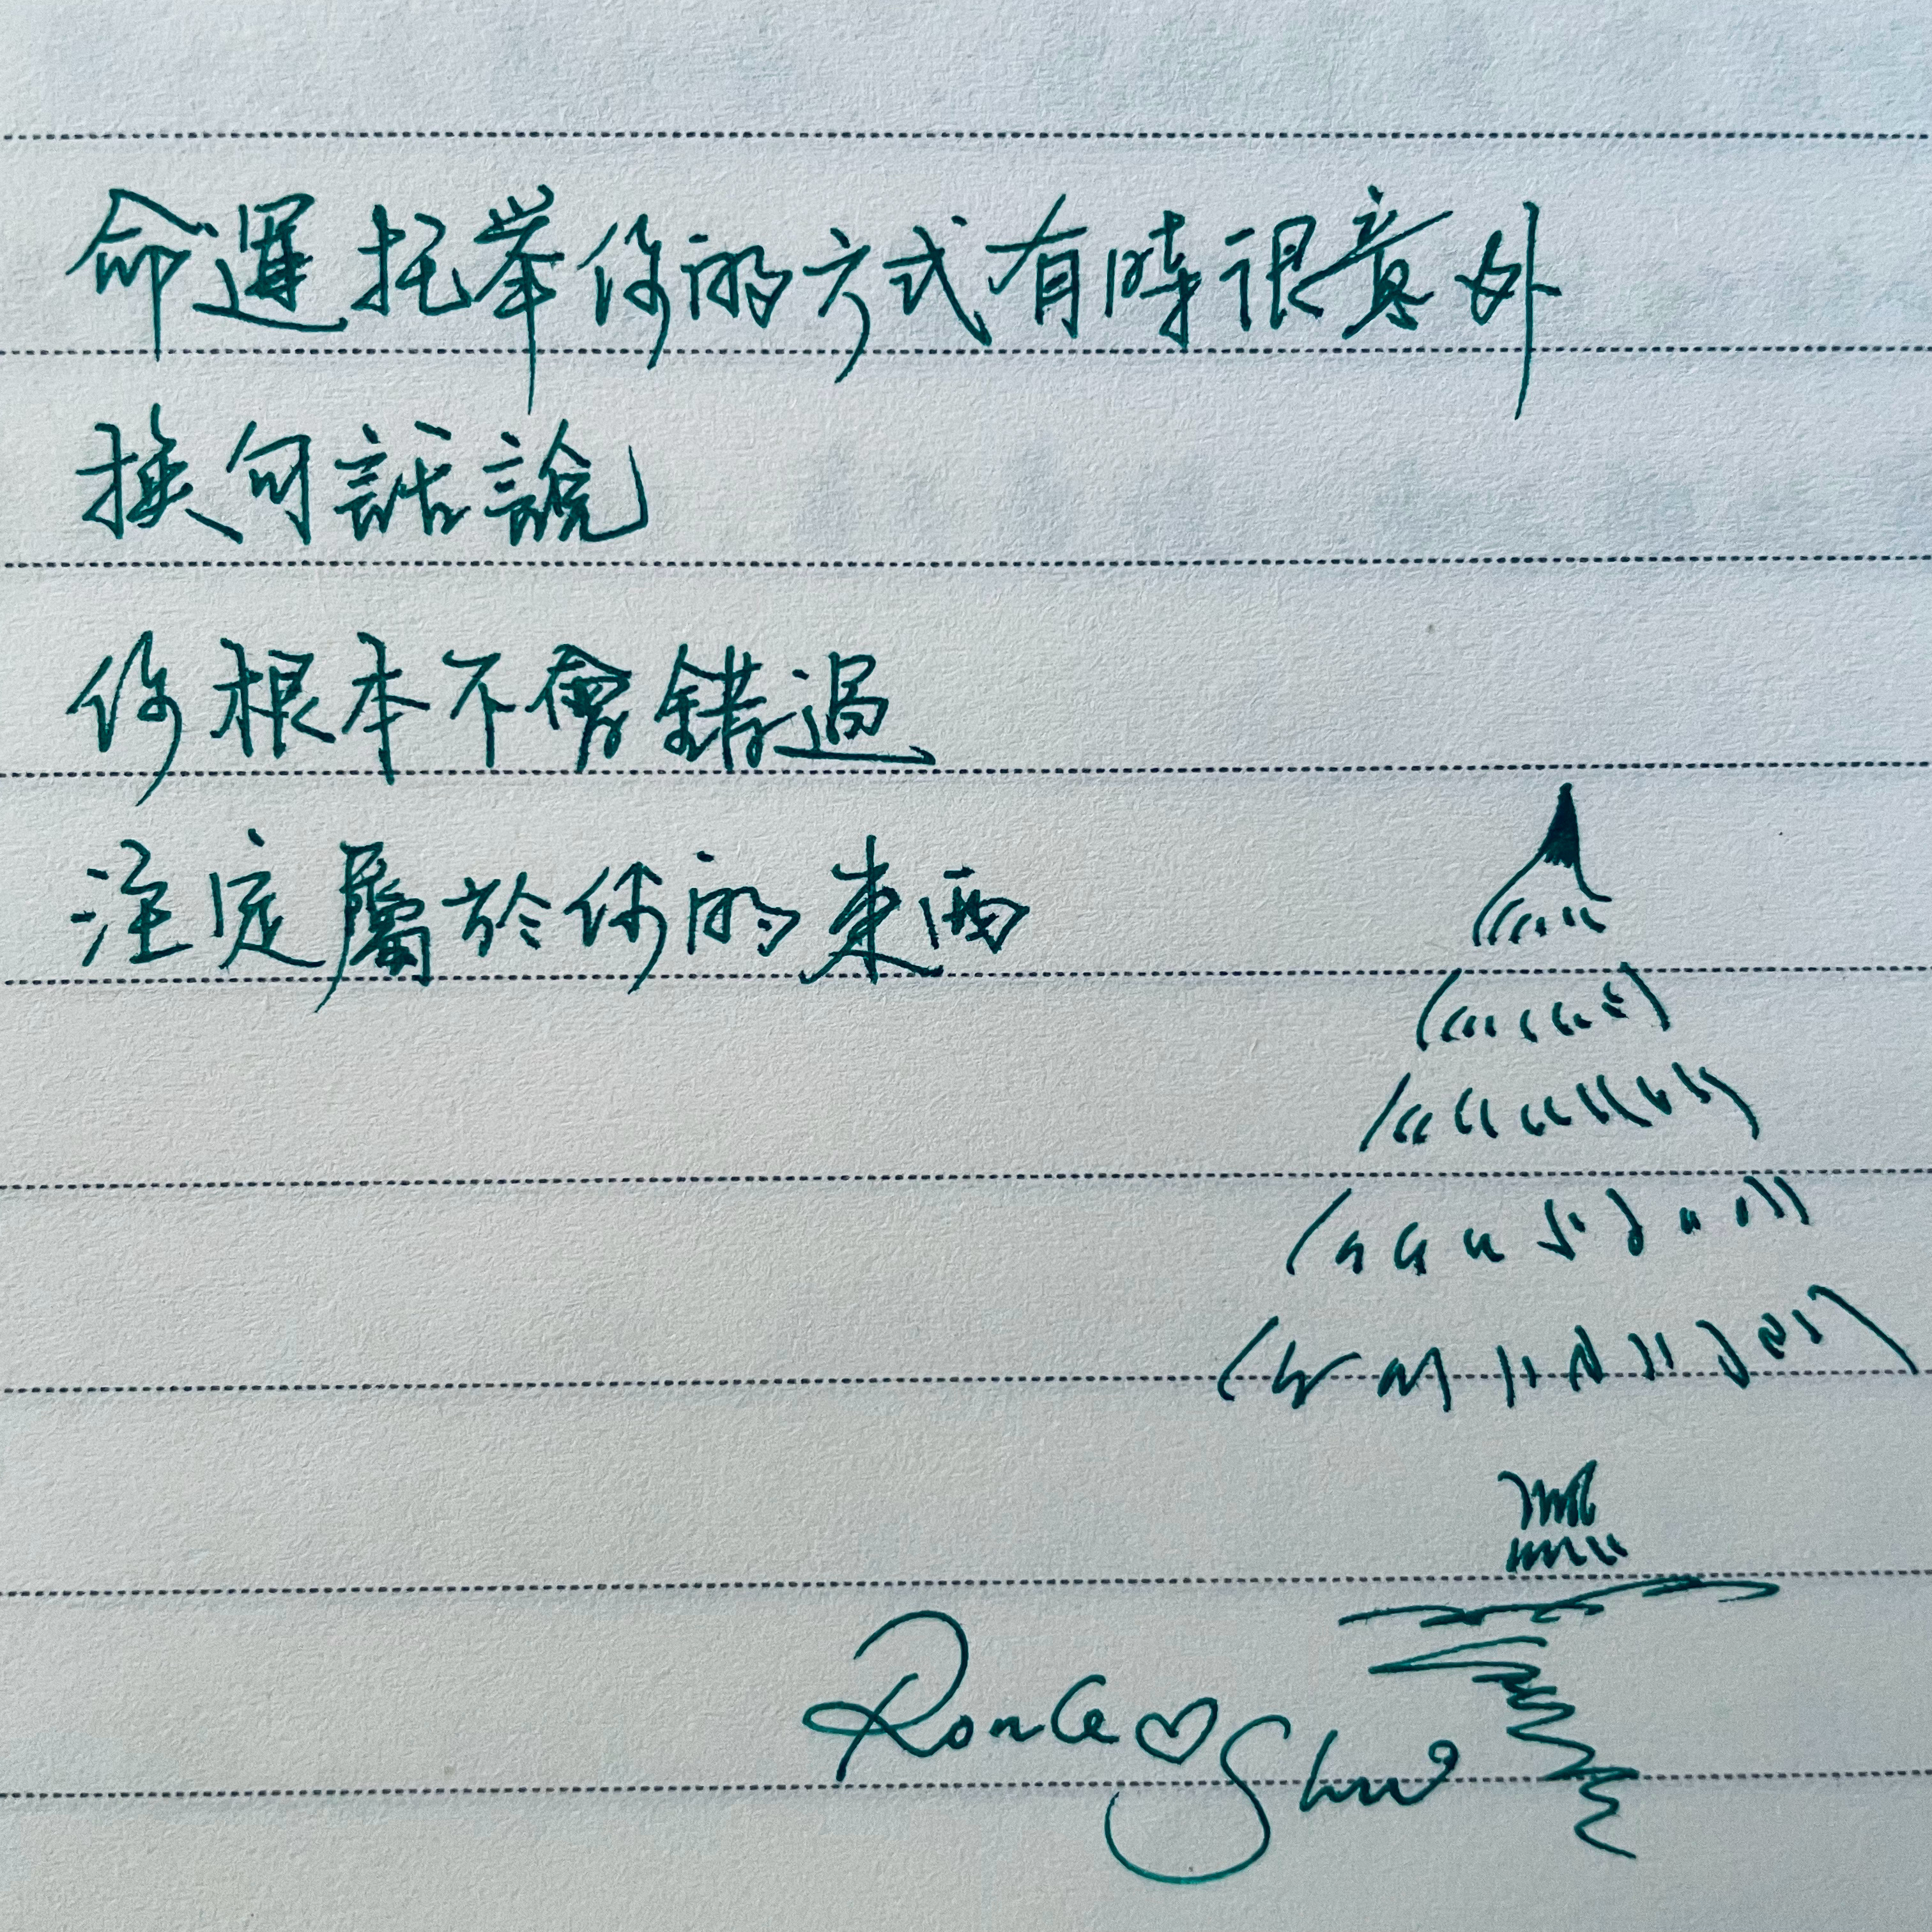 命運托举你的方式有時很意外
換句話說
你根本不會錯過
注定屬於你的東西